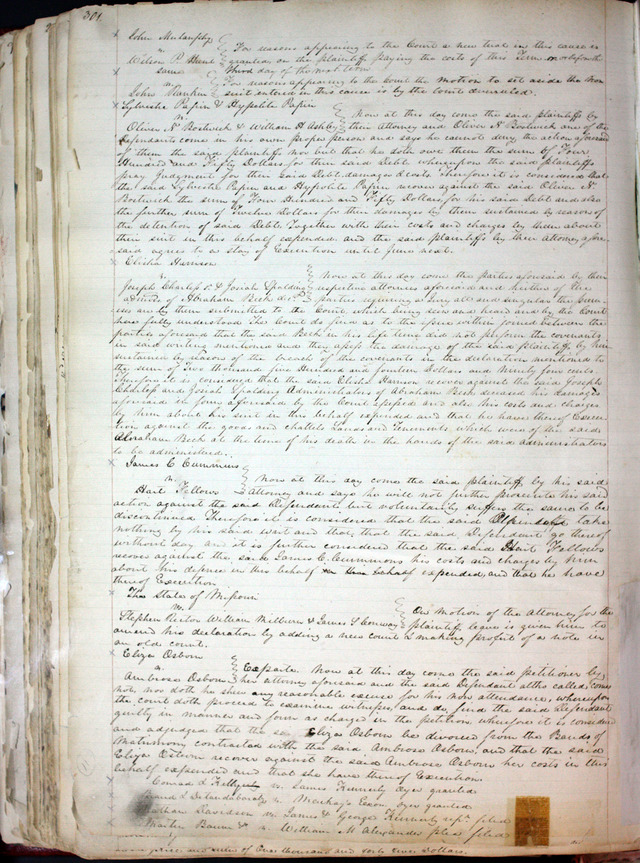 301
John Mulanphy
vs.
Wilson P. Hunt
For reasons appearing to the Court a new trial in this cause is
granted on the plaintiff paying the costs of this Term on or before the
third day of the next term
same
vs.
John
For reasons appearing to the Court the motion to set aside the non
suit entered in this cause is by the Court overruled.
Sylvestre Papin & Hypolite Papin
vs.
Oliver N Bostwick & William H Ashley
Now at this day come the said plaintiffs by
their Attorney and Oliver N Bostwick one of the
Defendants come in his own proper person and says he cannot deny the action aforesaid
of them the said plaintiffs nor but that he doth owe them the sum of Four
Hundred and Fifty Dollars for their said Debt whereupon the said plaintiffs
pray Judgment for their said Debt damages & costs. Therefore it is considered that
the said Sylvestre Papin and Hypolite Papin recover against the said Oliver N
Bostwick the sum of Four Hundred and Fifty Dollars for his said Debt and also
the further sum of Twelve Dollars for their damages by them sustained by reason of
the detention of said Debt Together with their costs and charges by them about
their suit in this behalf expended and the said plaintiffs by their Attorney afore
said agrees to a stay of Execution until June next.
Elisha Harrison
vs.
Joseph Charless & Josiah Spalding
admrs of Abraham Beck decd.
Now at this day come the parties aforesaid by their
respective attornies aforesaid and neither of the
parties requiring a Jury all and singular the premi
ses are by them submitted to the Court, which being seen and heard and by the Court
here fully understood The Court do find as to the issue within joined between the
parties aforesaid that the said Beck in his life time did not perform the covenants
in said writing mentioned and they assess the damages of the said plaintiff by him
sustained by reason of the breach of the covenants in the declaration mentioned to
the sum of Two thousand five Hundred and fourteen Dollars and Ninety four cents.
Therefore it is considered that the said Elisha Harrison recover against the said Joseph
Charless and Josiah Spalding Administrators of Abraham Beck deceased his damages
aforesaid in form aforesaid by the Court assessed and also his costs and charges
by him about his suit in this behalf expended and that he have thereof Execu
tion against the goods and chattels Lands and Tenements which were of the said
Abraham Beck at the time of his death in the hands of the said administrators
to be administered.
James C Cummins
vs.
Hait Fellows
Now at this day come the said plaintiff by his said
attorney and says he will not further prosecute his said
action against the said Defendant but voluntarily suffers the same to be
discontinued Therefore it is considered that the said take
nothing by his said writ and that, that the said Defendant go thereof
without day. and it is further considered that the said Hait Fellows
recover against the said James C. Cummins his costs and charges by him
about his defence in this behalf expended, and that he have
thereof Execution.
The State of Missouri
vs.
Stephen Rector William Milburn & James S Conway
On Motion of the Attorney for the
plaintiff leave is given him to
amend his declaration by adding a new count & making profert of a note in
an old count.
Eliza Osborn
vs.
Ambrose Osborn
Exparte Now at this day come the said petitioner by
her attorney aforesaid and the said Defendant altho called, comes
not, nor doth he shew any reasonable excuse for his non attendance, whereupon
the court doth proceed to examine witnesses, and do find the said Defendant
guilty in manner and form as charged in the petition wherefore it is consider
and adjudged that the said Eliza Osborn be divorced from the Bands of
Matrimony contracted with the said Ambrose Osborn, and that the said
Eliza Osborn recover against the said Ambrose Osborn her costs in this
behalf expended and that she have thereof Execution.
Conrad vs. James Kennerly oyer granted
vs. oyer granted
vs. James & George Kennerly filed
vs. William M Alexander pleas filed
sum of One thousand and sixty two Dollars.